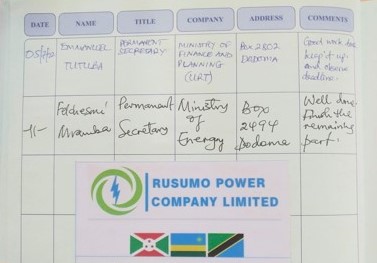 DATE NAME TITLE COMPANY ADDRESS COMMENTS
EMMANUEL PERMANENT MINISTRY OF Box 2802 Good work
TUTUBA SECRETARY FINANCE AND DODOMA keep it up
PLANNING and observe
(URT) deadline.
-11- Felchesmi Permanent Ministry Box Well done.
Mramba Secretary of 2494 Finish the
Energy Dodoma remaining
part.
RUSUMO POWER
COMPANY LIMITED